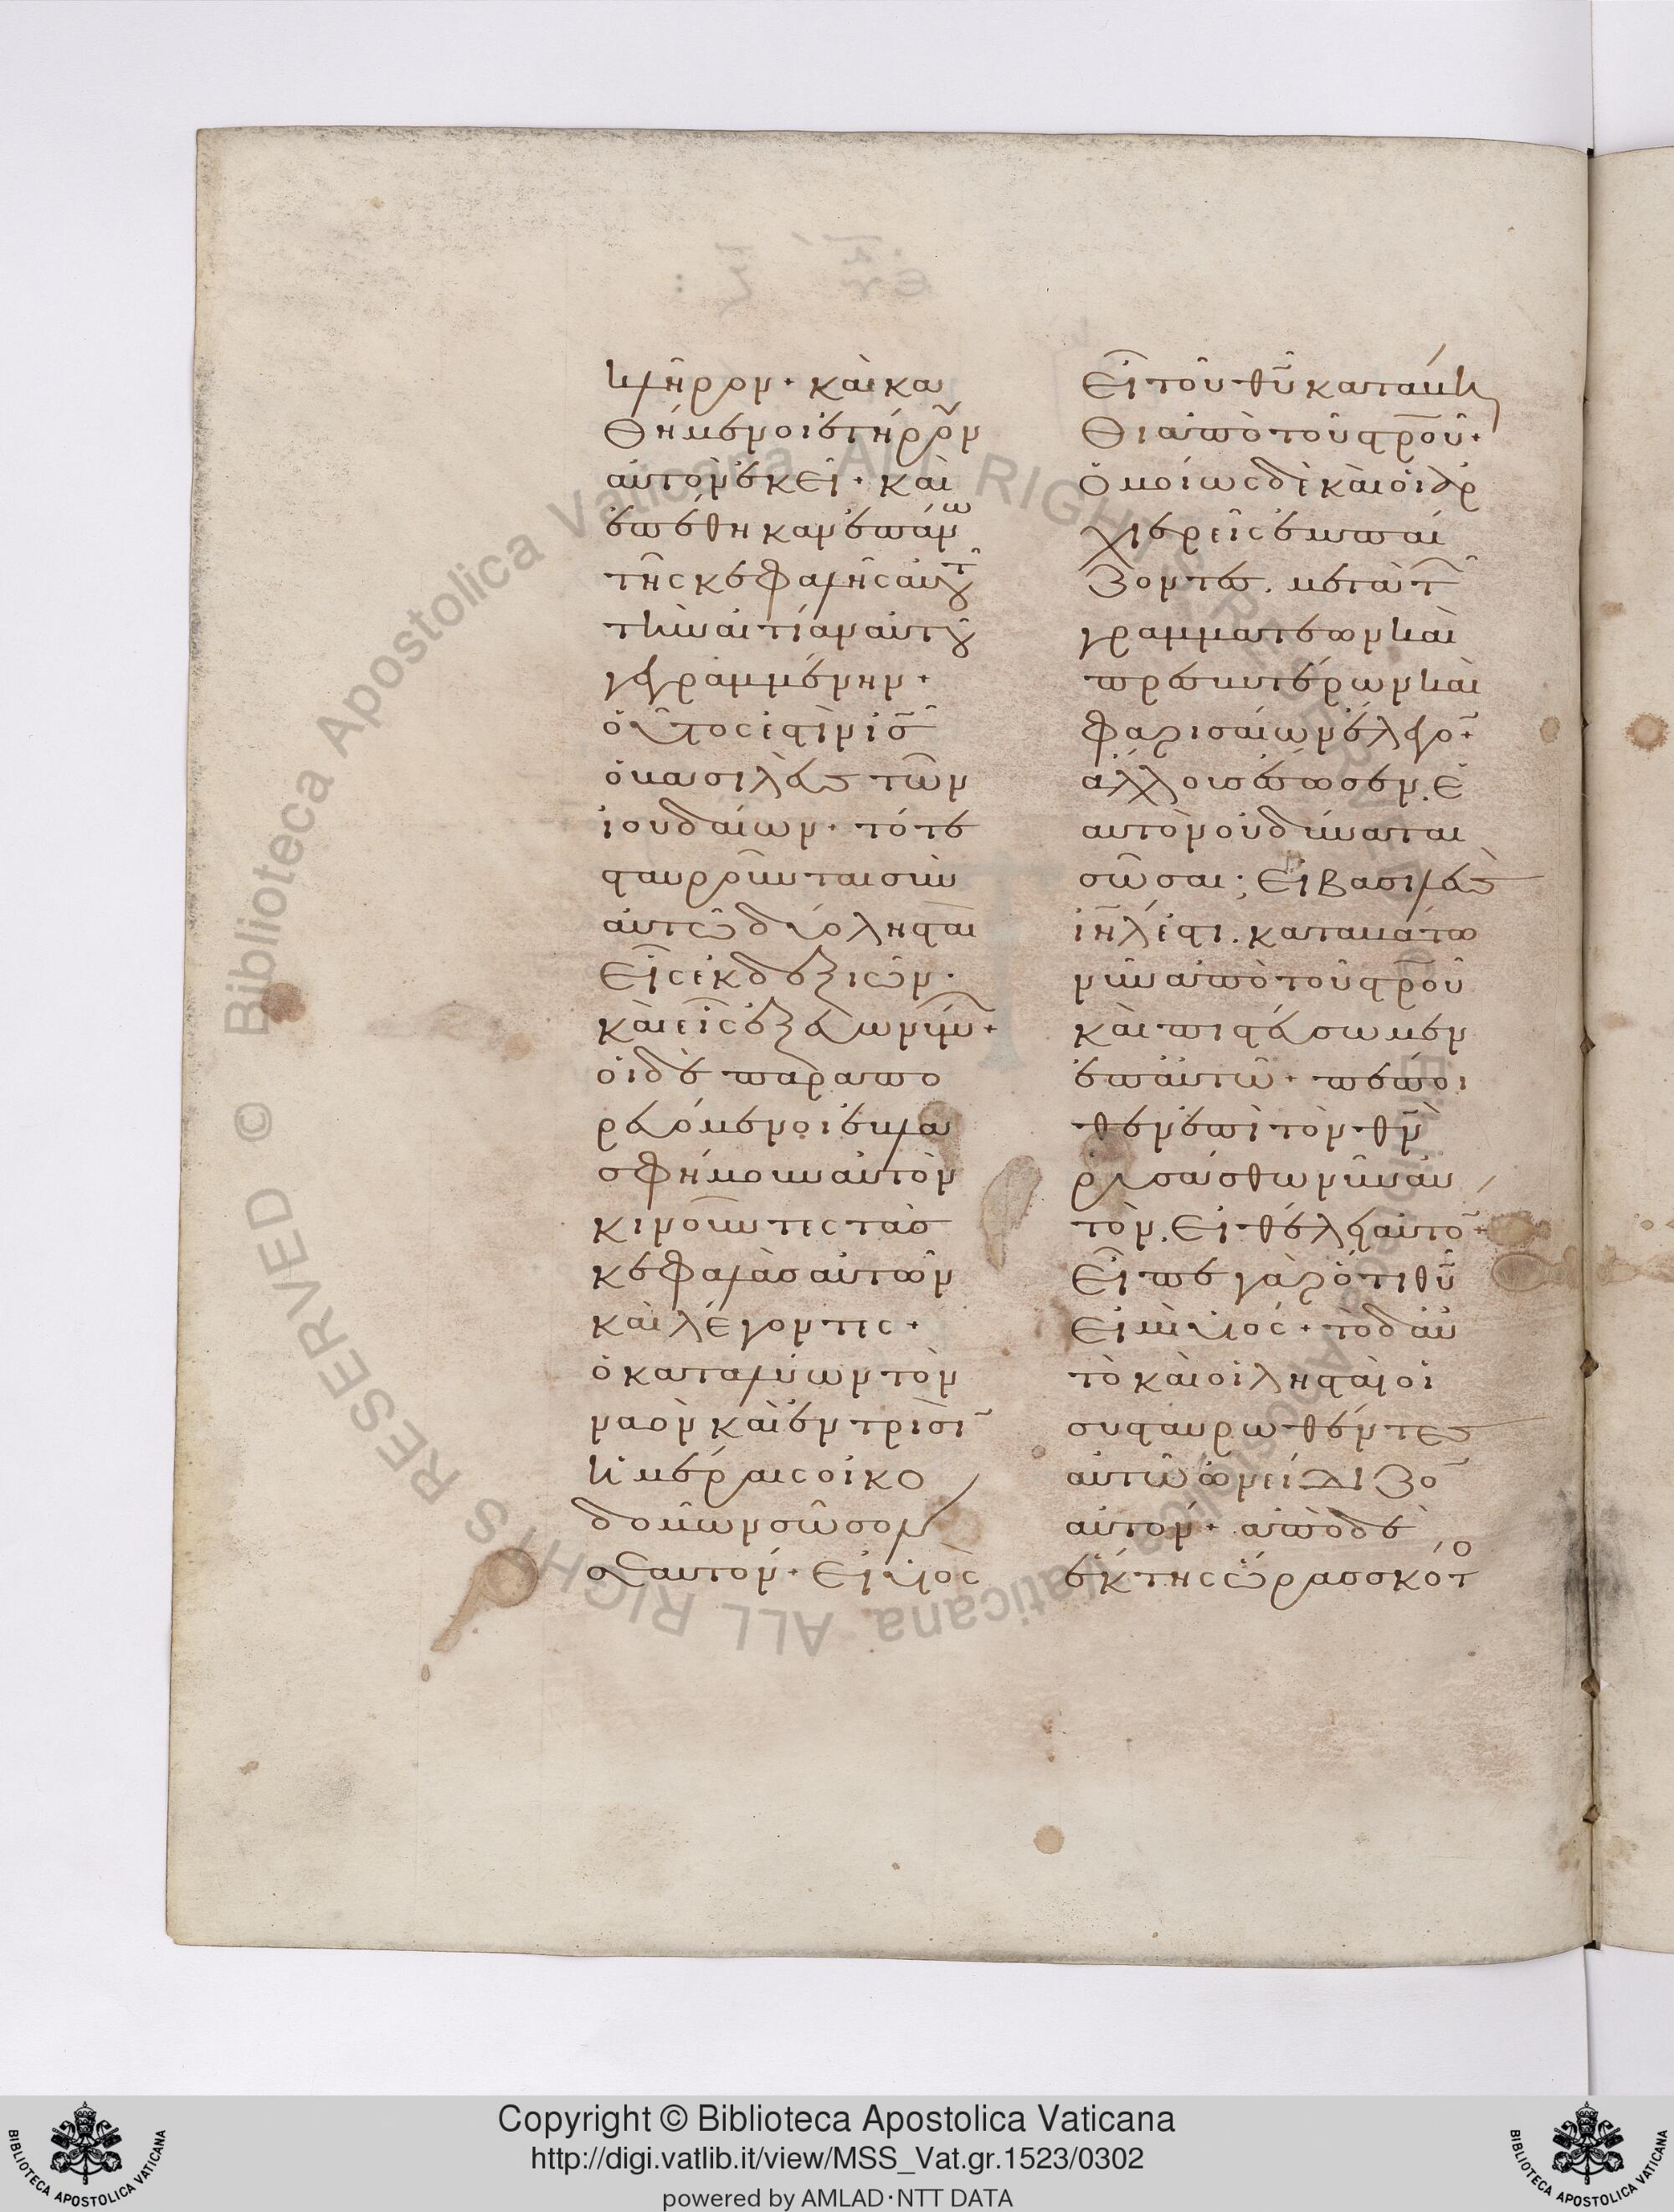 κλῆρον· καὶ κα
θήμενοι ἐτήρουν
αὐτὸν ἐκεῖ· καὶ
ἐπέθηκαν ἐπάνω
τῆς κεφαλῆς αὐτοῦ
τὴν αἰτίαν αὐτοῦ
γεγραμμένην·
οὗτος ἐστὶν ἰς
ὁ βασιλεὺς τῶν
ἰουδαίων· τότε
σταυροῦνται σὺν
αὐτῷ δύο λησταὶ
εἷς ἐκ δεξιῶν·
καὶ εἷς ἐξ εὐωνύμων·
οἱ δὲ παραπο
ρευόμενοι ἐβλα
σφήμουν αὐτὸν
κινοῦντες τὰς
κεφαλὰς αὐτῶν
καὶ λέγοντες·
ὁ καταλύων τὸν
ναὸν καὶ ἐν τρισὶν
ἡμέραις οἰκο
δομῶν σῶσον
σεαυτόν· εἰ υἱὸς
εἶ τοῦ θῦ κατάβη
θι ἀπὸ τοῦ στροῦ·
ὁμοίως δὲ καὶ οἱ ἀρ
χιερεῖς ἐμπαί
ζοντες. μετὰ τῶν
γραμματέων καὶ
πρεσβυτέρων καὶ
φαρισαίων ἔλεγον·
ἄλλους ἔσωσεν. ἑ
αυτὸν οὐ δύναται
σῶσαι; εἰ βασιλεὺς
ιηλ ἐστι. καταβάτω
νῦν ἀπὸ τοῦ στροῦ
καὶ πιστεύσωμεν
ἐπ' αὐτῷ· πέποι
θεν ἐπὶ τὸν θν
ῥυσάσθω νῦν αὐ
τὸν. εἰ θέλει αὐτόν·
εἶπε γὰρ ὅτι θῦ
εἰμὶ υἱός· τὸ δ' αὐ
τὸ καὶ οἱ λησταὶ οἱ
συσταυρωθέντες
αὐτῷ ὠνείδιζον
αὐτόν· ἀπὸ δὲ
ἕκτης ὥρας σκότο
Copyright © Biblioteca Apostolica Vaticana
http://digi.vatlib.it/view/MSS_Vat.gr.1523/0302
powered by AMLAD·NTT DATA